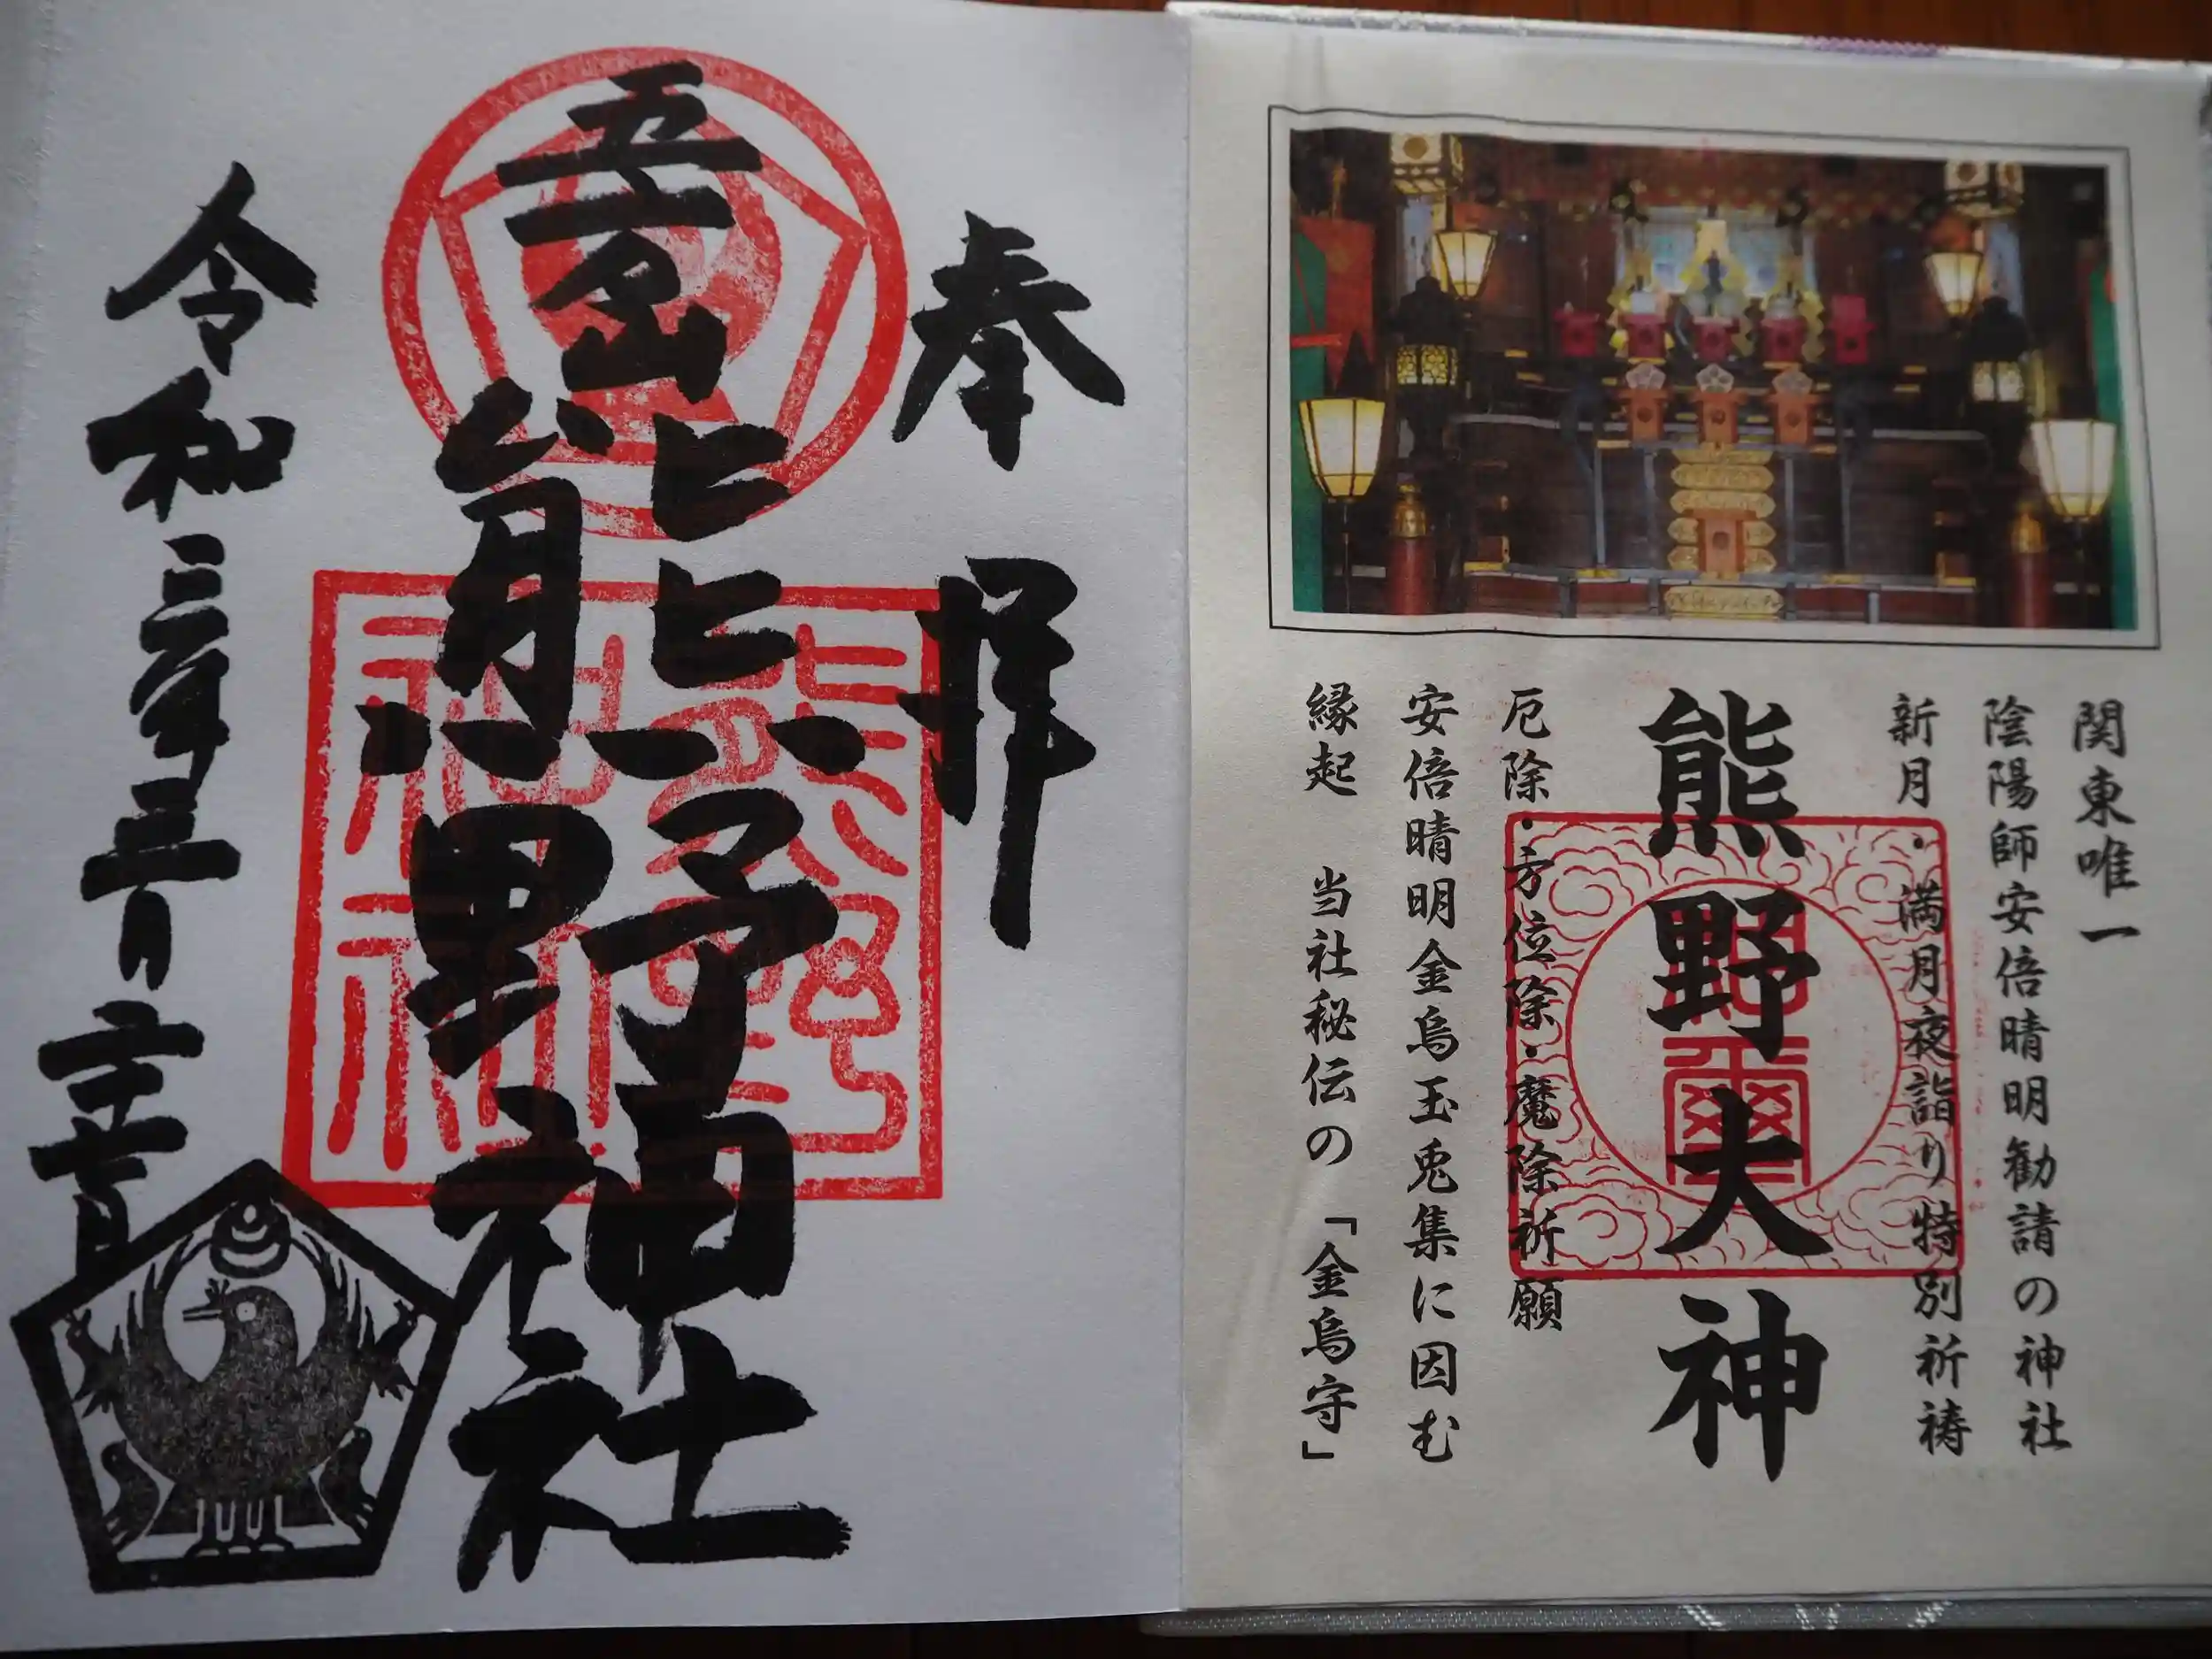 関東唯一
陰陽師安倍晴明勧請の神社
新月・満月夜詣り特別祈祷
熊野大神
厄除・方位除・魔除祈願
安倍晴明金烏玉兎集に因む
縁起　当社秘伝の「金烏守」
奉拝
五方山熊野神社
熊野
神社
令和三年三月